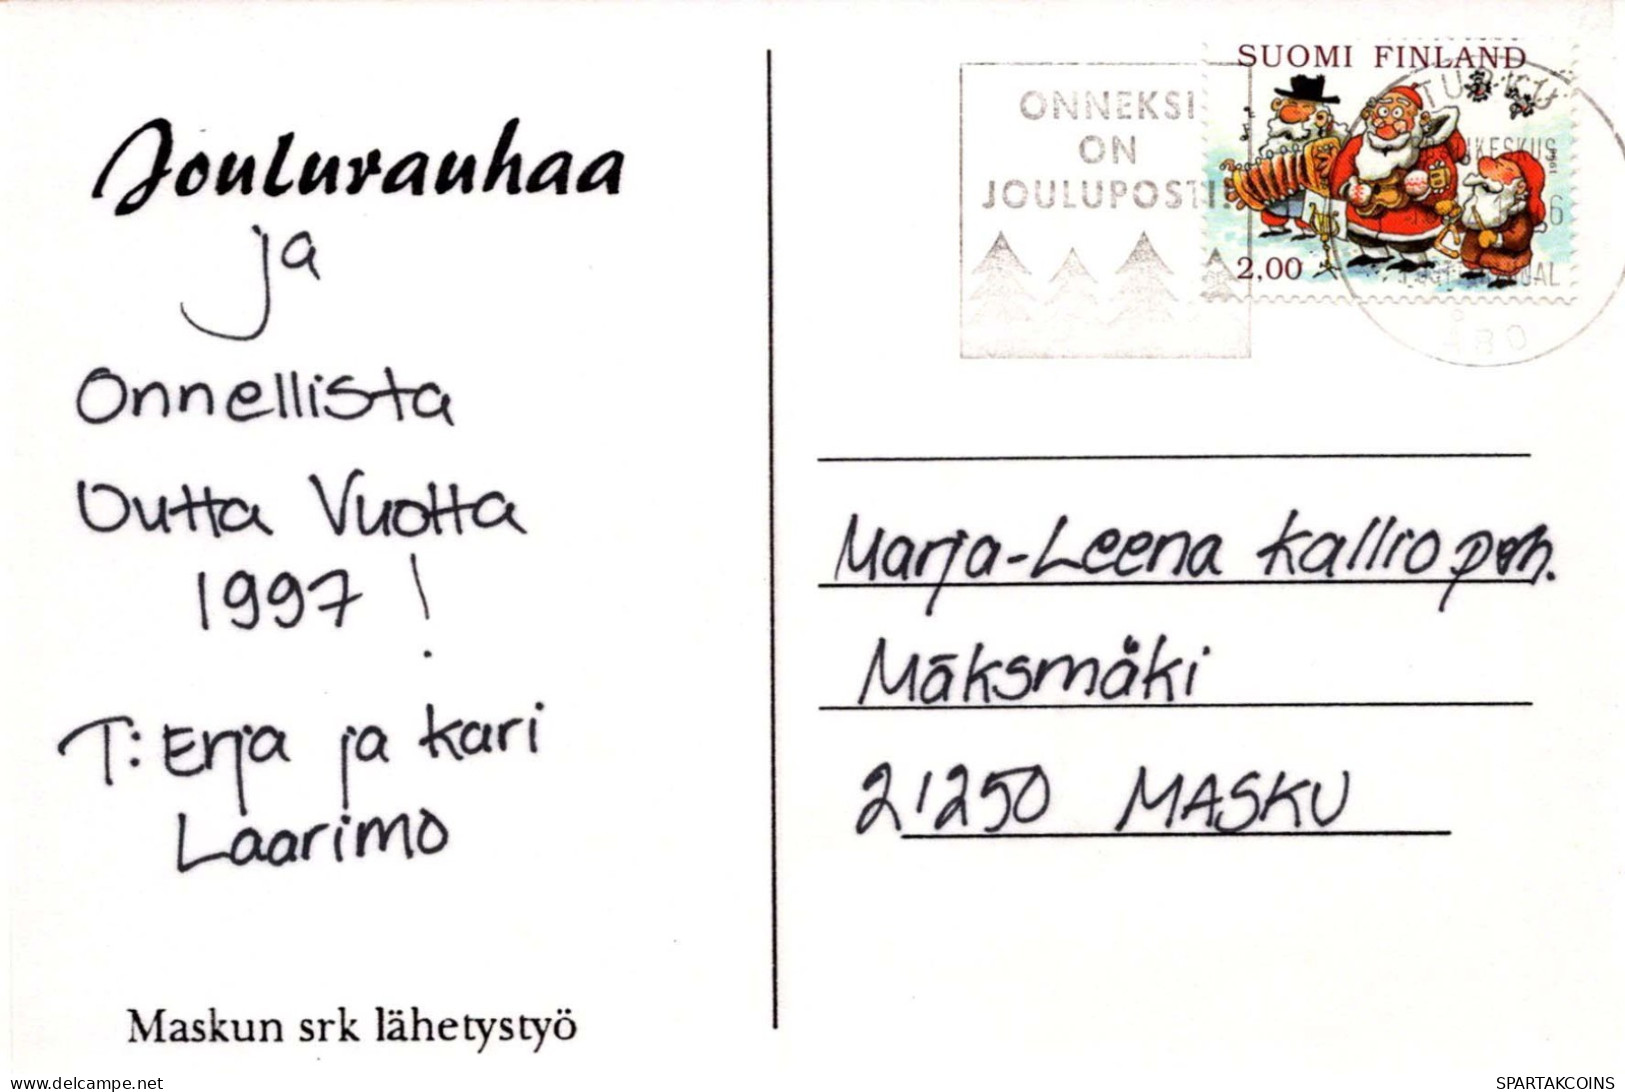 Joulurauhaa
ja
Onnellista
Uutta Vuotta
1997 !
T: Erja ja Kari
Laarimo
Maskun srk lähetystyö
ONNEKSI
ON
JOULUPOSTI!
SUOMI FINLAND
2,00
TURKU
ÅBO
Marja-Leena Kallio per.
Mäksmäki
21250 MASKU
delcampe.net
SPARTAKCOINS